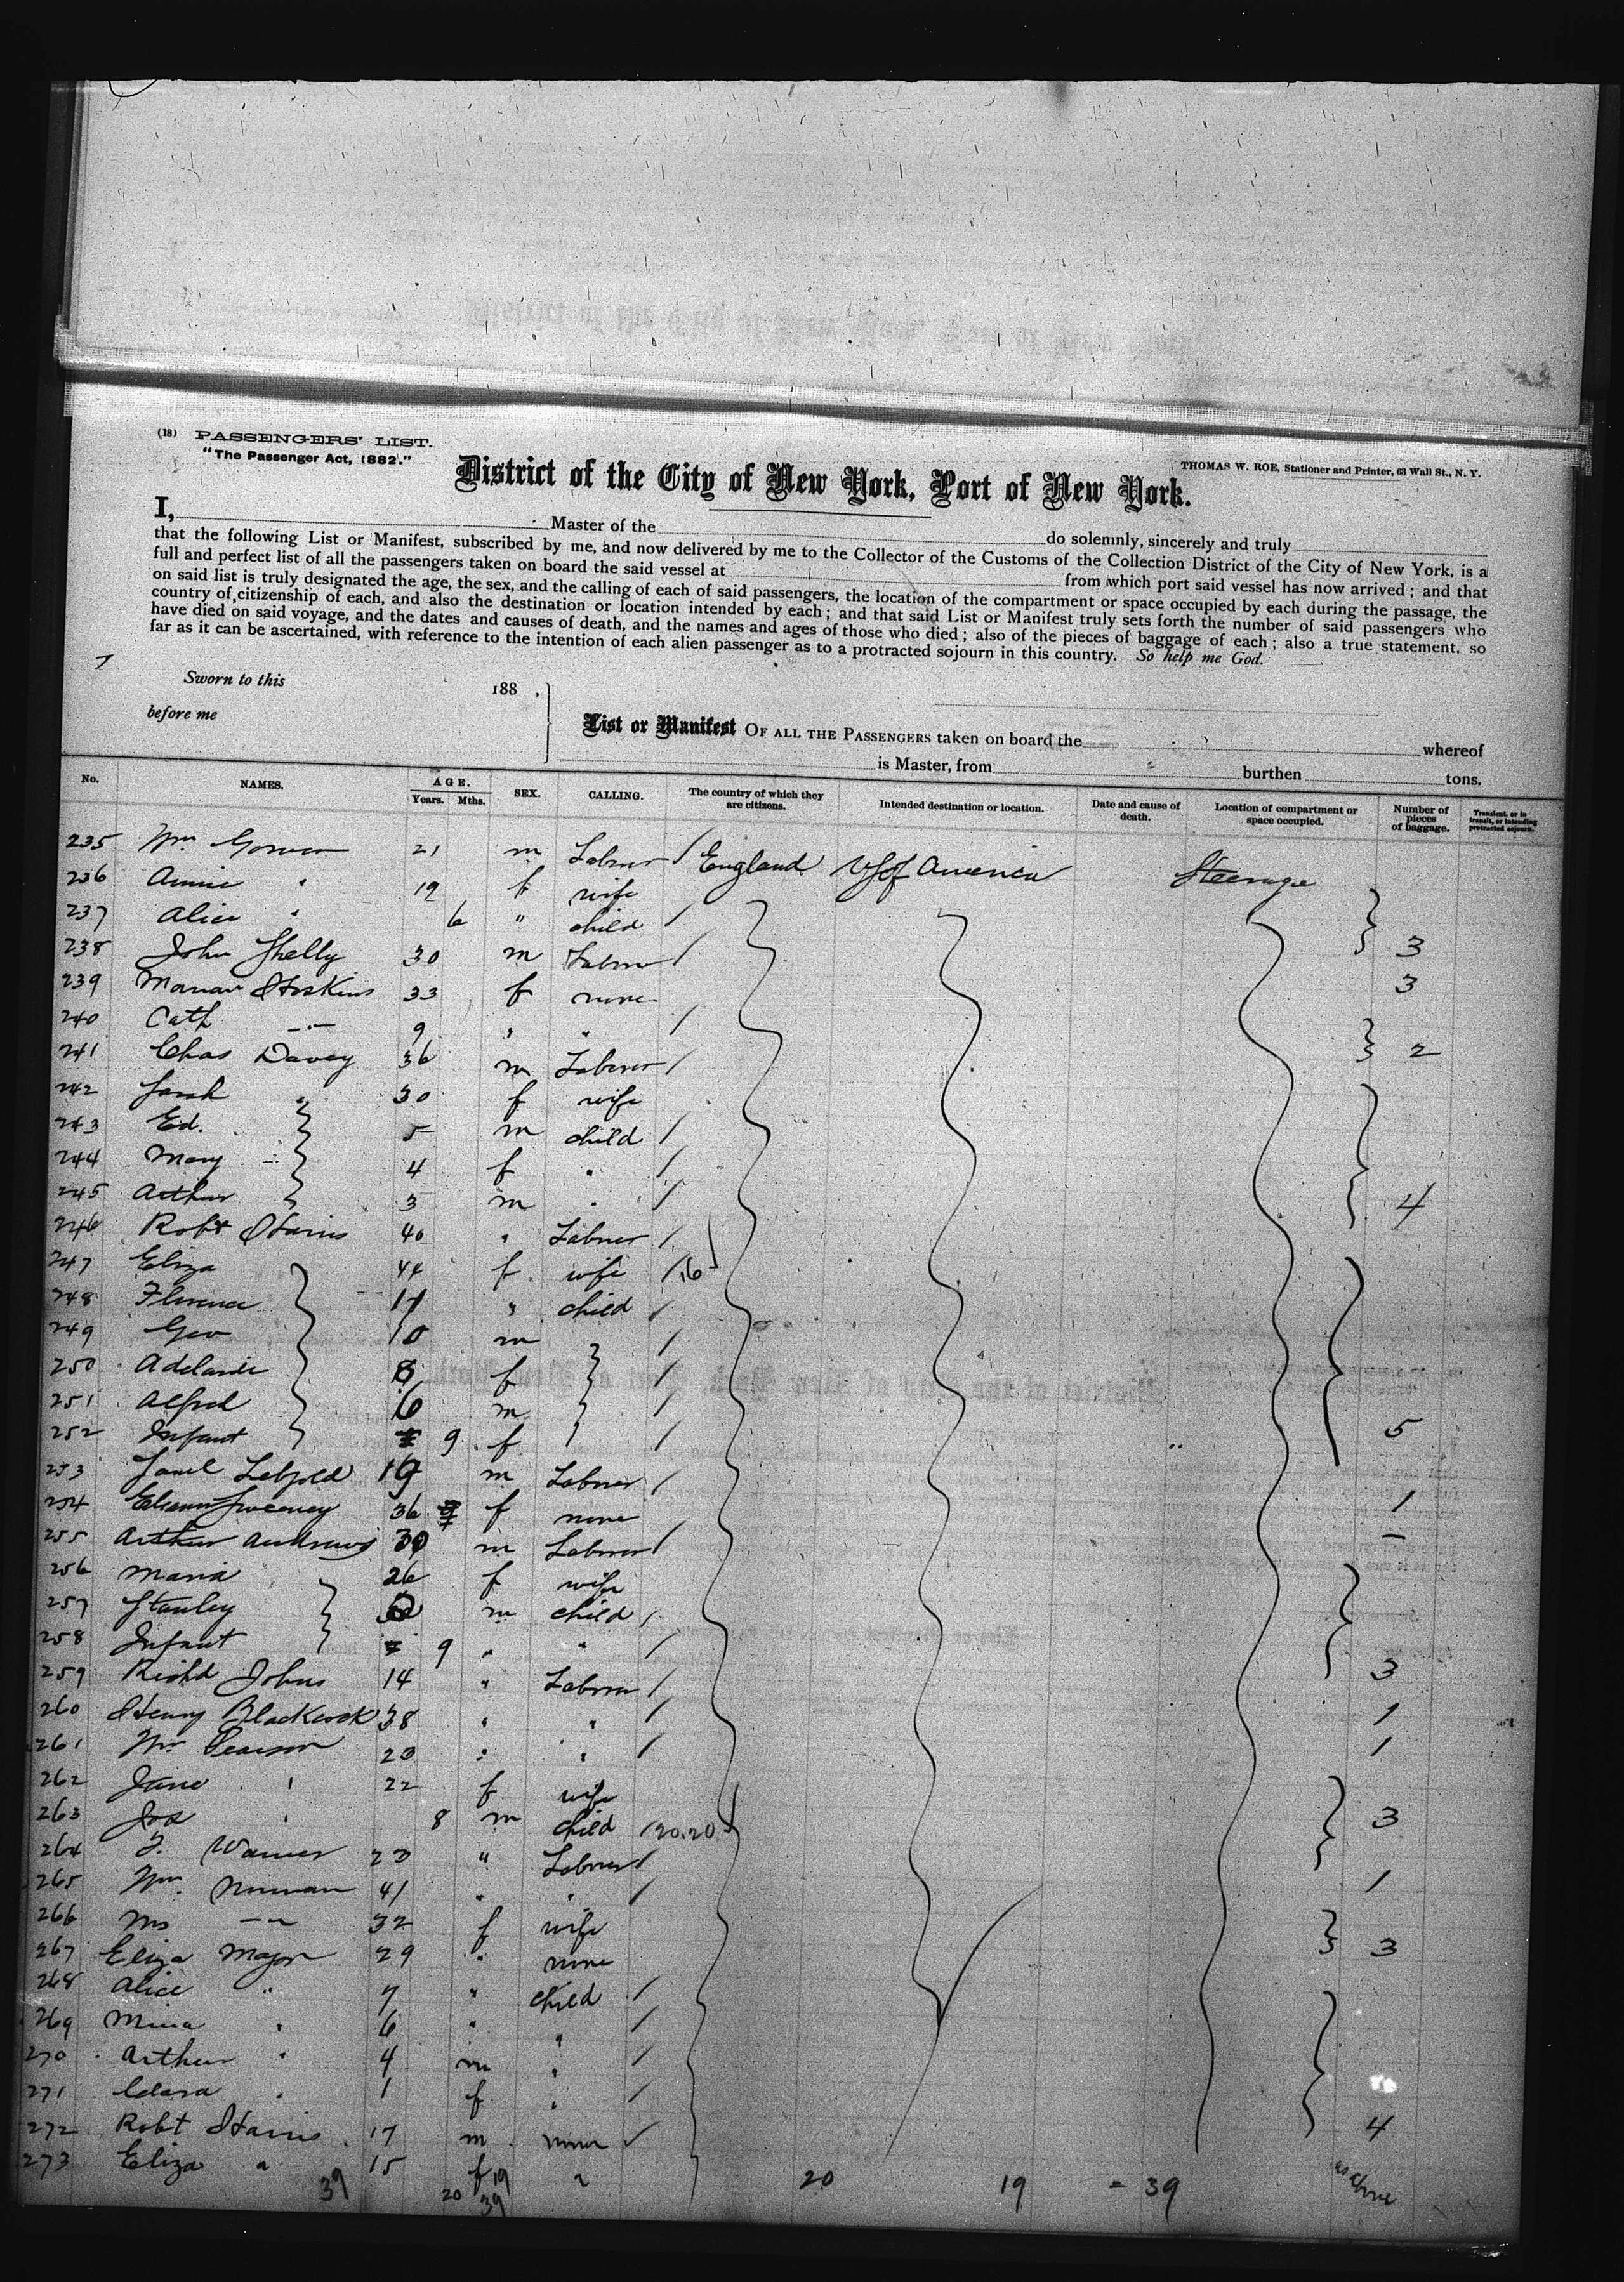 (18) PASSENGERS' LIST.
"The Passenger Act, 1882."
THOMAS W. ROE, Stationer and Printer, 63 Wall St., N. Y.
District of the City of New York, Port of New York.
I, Master of the do solemnly, sincerely and truly
that the following List or Manifest, subscribed by me, and now delivered by me to the Collector of the Customs of the Collection District of the City of New York, is a
full and perfect list of all the passengers taken on board the said vessel at from which port said vessel has now arrived; and that
on said list is truly designated the age, the sex, and the calling of each of said passengers, the location of the compartment or space occupied by each during the passage, the
country of citizenship of each, and also the destination or location intended by each; and that said List or Manifest truly sets forth the number of said passengers who
have died on said voyage, and the dates and causes of death, and the names and ages of those who died; also of the pieces of baggage of each; also a true statement, so
far as it can be ascertained, with reference to the intention of each alien passenger as to a protracted sojourn in this country. So help me God.
Sworn to this 188 .
before me
List or Manifest OF ALL THE PASSENGERS taken on board the whereof
is Master, from burthen tons.
No. NAMES. AGE. Years. Mths. SEX. CALLING. The country of which they are citizens. Intended destination or location. Date and cause of death. Location of compartment or space occupied. Number of pieces of baggage. Transient, or in transit, or intending protracted sojourn.
235 Wm 21 m Labrer / England US of America Steerage
236 Annie " 19 f wife
237 Alice " 6 " child /
238 John Shelly 30 m Labrer / 3
239 Hoskins 33 f none 3
240 Cath " 9 " " /
241 Chas Davey 36 m Labrer / 2
242 Sarah " 30 f wife
243 Ed. 5 m child /
244 Mary " 4 f " /
245 Arthur 3 m " / 4
246 Robt Harris 40 " Labrer /
247 Eliza 44 f wife / 16
248 Florence 11 " child /
249 Geo 10 m /
250 Adelaide 8 f /
251 Alfred 6 m /
252 Infant 9 f / 5
253 Saml 19 m Labrer /
254 Sweeney 36 f none 1
255 Arthur Andrews 30 m Labrer / –
256 Maria 26 f wife
257 Stanley m child /
258 Infant 9 " " /
259 Richd Johns 14 " Labrer / 3
260 Henry Blackcock 38 " " / 1
261 Wm Pearson 23 " " / 1
262 Jane " 22 f wife
263 Jos " 8 m child / 20.20 3
264 F. Warner 23 " Labrer /
265 Wm. Norman 41 " " / 1
266 Mrs " 32 f wife
267 Eliza Major 29 " none 3
268 Alice " 7 " child /
269 Mina " 6 " " /
270 Arthur " 4 m " /
271 Clara " 1 f " /
272 Robt Harris 17 m none ✓ 4
273 Eliza " 15 f " as above
39 20 19 39 20 19 = 39